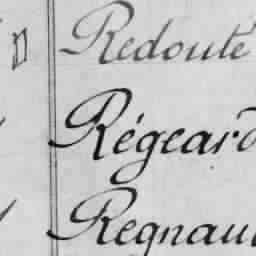 Redouté
Régeard
Regnau